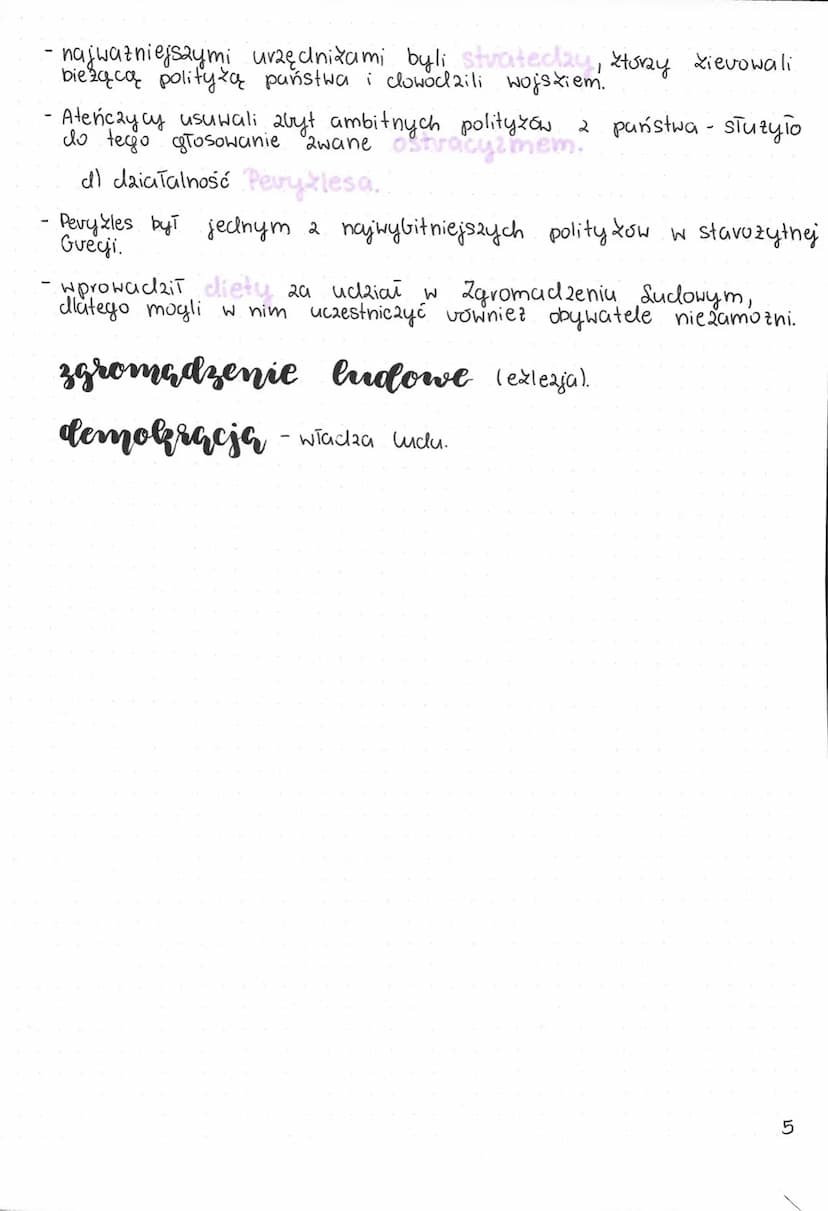 - najważniejszymi urzędnikami byli stratedzy, którzy kierowali
bieżącą polityką państwa i dowodzili wojskiem.
- Ateńczycy usuwali zbyt ambitnych polityków z państwa - służyło
do tego głosowanie zwane ostracyzmem.
d) działalność Peryklesa.
- Perykles był jednym z najwybitniejszych polityków w starożytnej
Grecji.
- wprowadził diety za udział w Zgromadzeniu Ludowym,
dlatego mogli w nim uczestniczyć również obywatele niezamożni.
zgromądzenie ludowe (eklezja).
demokrącją - władza ludu.
5